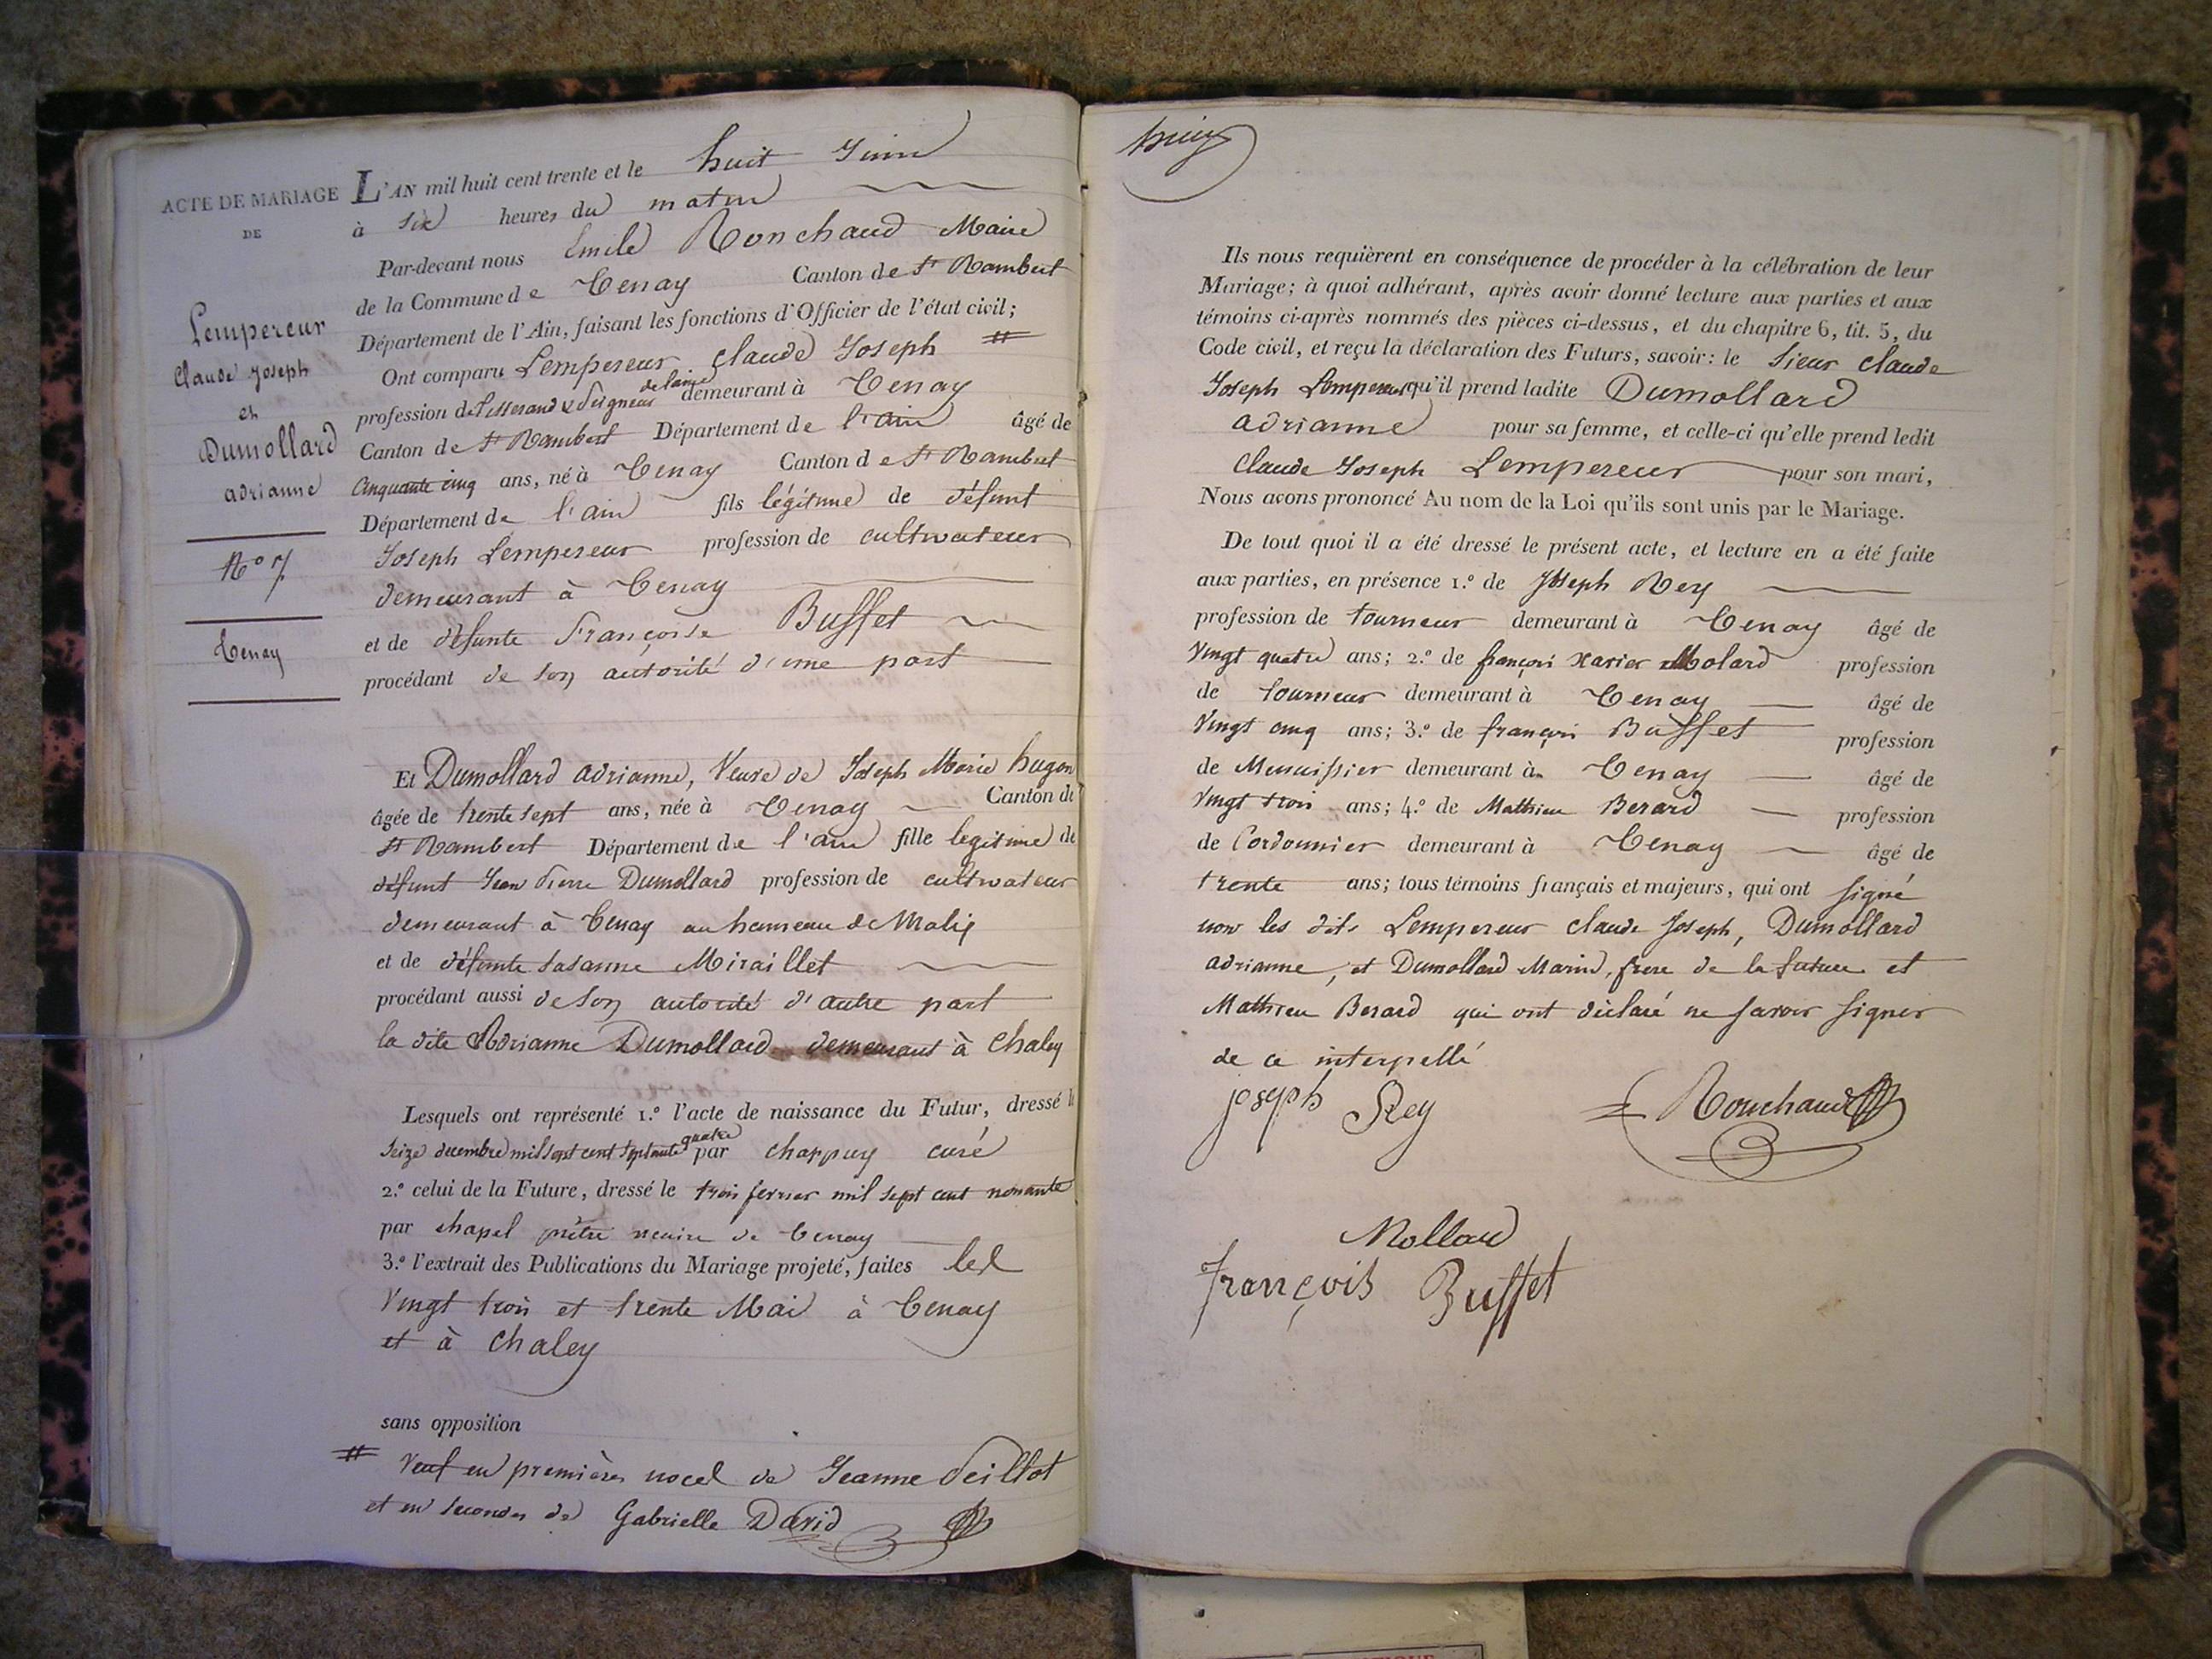 ACTE DE MARIAGE
DE
Lempereur
Claude Joseph
et
Dumollard
adrianne
N° 7
Tenay
L'AN mil huit cent trente et le huit Juin
à six heures du matin
Par-devant nous Emile Ronchaud Maire
de la Commune de Tenay Canton de St Rambert
Département de l'Ain, faisant les fonctions d'Officier de l'état civil;
Ont comparu Lempereur Claude Joseph #
profession de tisserand & peigneur de laine demeurant à Tenay
Canton de St Rambert Département de l'ain âgé de
Cinquante cinq ans, né à Tenay Canton de St Rambert
Département de l'ain fils légitime de défunt
Joseph Lempereur profession de cultivateur
demeurant à Tenay
et de défunte Françoise Buffet
procédant de son autorité d'une part
Et Dumollard adrianne, Veuve de Joseph Marie hugon
âgée de trente sept ans, née à Tenay Canton de
St Rambert Département de l'ain fille legitime de
défunt Jean Pierre Dumollard profession de cultivateur
demeurant à Tenay au hameau de Malix
et de défunte susanne Miraillet
procédant aussi de son autorité d'autre part
la dite Adrianne Dumollard demeurant à Chaley
Lesquels ont représenté 1.° l'acte de naissance du Futur, dressé le
Seize decembre mil sept cent septante quatre par chappuy curé
2.° celui de la Future, dressé le trois fevrier mil sept cent nonante
par chapel prêtre vicaire de Tenay
3.° l'extrait des Publications du Mariage projeté, faites les
Vingt trois et trente Mai à Tenay
et à Chaley
sans opposition
# Veuf en premières noces de Jeanne Peillot
et en secondes de Gabrielle David
Ils nous requièrent en conséquence de procéder à la célébration de leur
Mariage; à quoi adhérant, après avoir donné lecture aux parties et aux
témoins ci-après nommés des pièces ci-dessus, et du chapitre 6, tit. 5, du
Code civil, et reçu la déclaration des Futurs, savoir: le Sieur Claude
Joseph Lempereur qu'il prend ladite Dumollard
adrianne pour sa femme, et celle-ci qu'elle prend ledit
Claude Joseph Lempereur pour son mari,
Nous avons prononcé Au nom de la Loi qu'ils sont unis par le Mariage.
De tout quoi il a été dressé le présent acte, et lecture en a été faite
aux parties, en présence 1.° de Joseph Rey
profession de tourneur demeurant à Tenay âgé de
Vingt quatre ans; 2.° de françois xavier Molard profession
de tourneur demeurant à Tenay âgé de
Vingt cinq ans; 3.° de françois Buffet profession
de Menuissier demeurant à Tenay âgé de
Vingt trois ans; 4.° de Mathieu Berard profession
de Cordonnier demeurant à Tenay âgé de
trente ans; tous témoins français et majeurs, qui ont signé
non les dits Lempereur Claude Joseph, Dumollard
adrianne, et Dumollard Marin, frere de la future et
Mathieu Berard qui ont déclaré ne savoir signer
de ce interpellé
joseph Rey Ronchaud
Mollard
françois Buffet